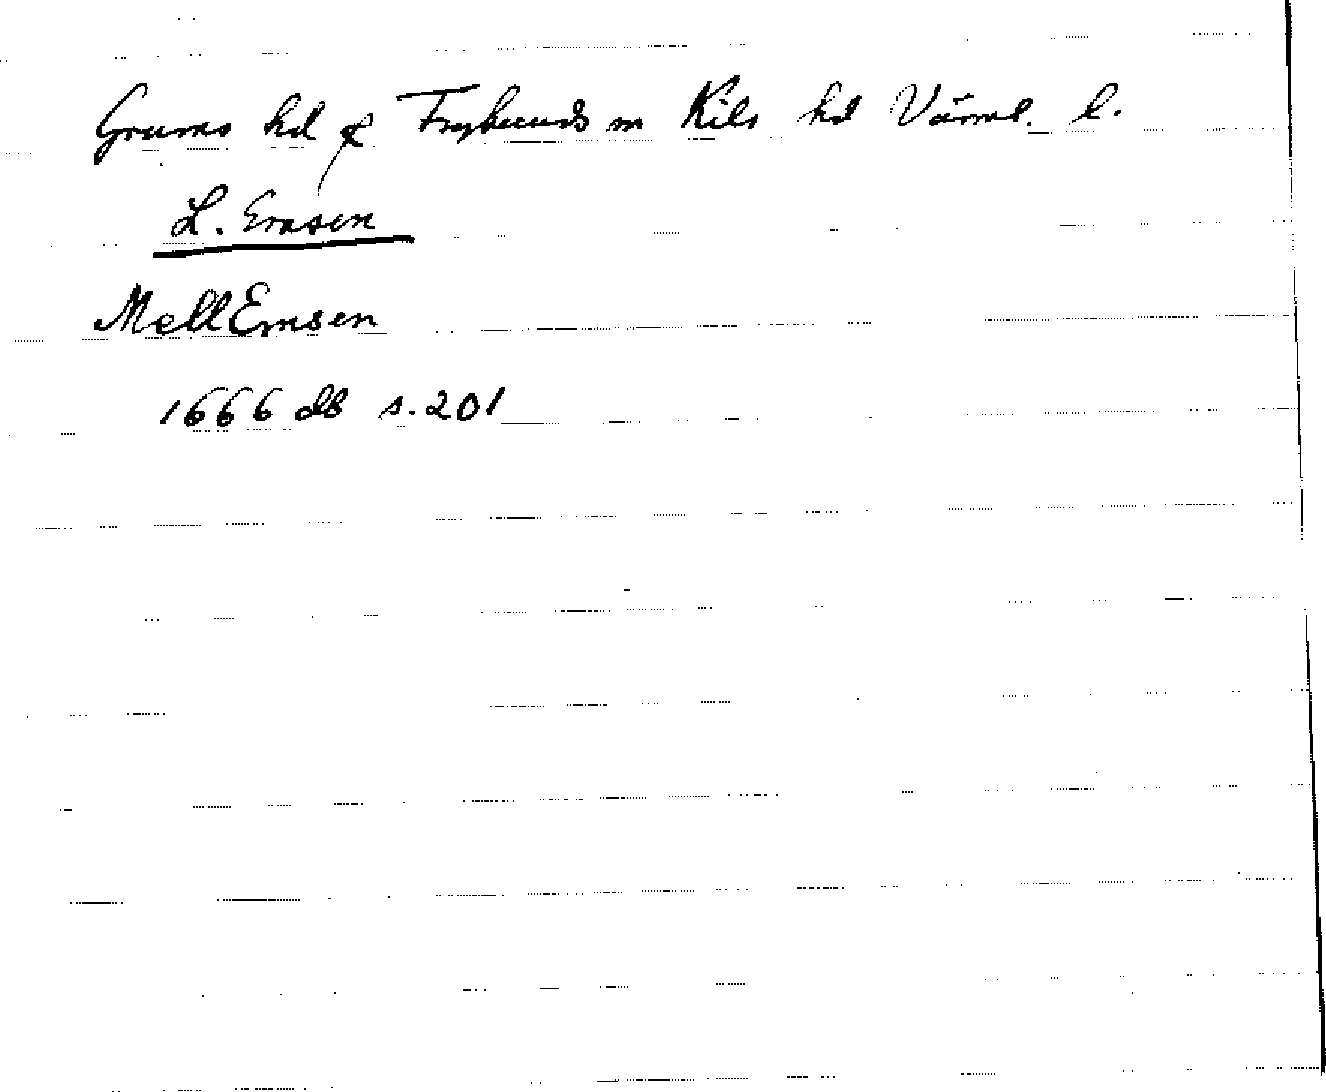 Grums hd & Frykerud sn Kils hd Värml. l.
L. Emsen
MellEmsen
1666 db s. 201